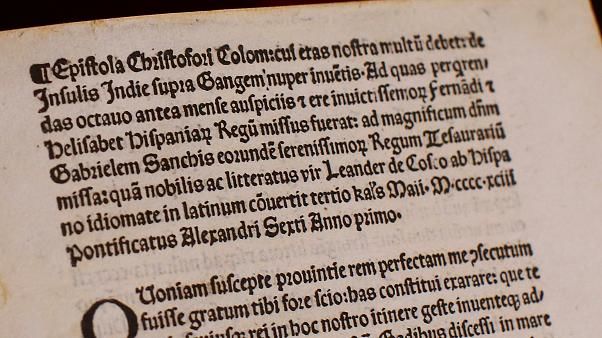 ¶ Epistola Christofori Colom: cui etas nostra multũ debet: de
Insulis Indie supra Gangem nuper inuẽtis. Ad quas perqren-
das octauo antea mense auspiciis ⁊ ere inuictissemoꝝ Fernãdi ⁊
Helisabet Hispaniaꝝ Regũ missus fuerat: ad magnificum dñm
Gabrielem Sanchis eorundẽ serenissimoꝝ Regum Tesaurariũ
missa: quã nobilis ac litteratus vir Leander de Cosco ab Hispa
no idiomate in latinum cõuertit tertio kal's Maii. M.cccc.xciii
Pontificatus Alexandri Sexti Anno primo.
QUoniam suscepte prouintie rem perfectam me ↄsecutum
fuisse gratum tibi fore scio: has constitui exarare: que te
rei in hoc nostro itinere geste inuenteqꝫ ad-
Gadibus discessi in mare